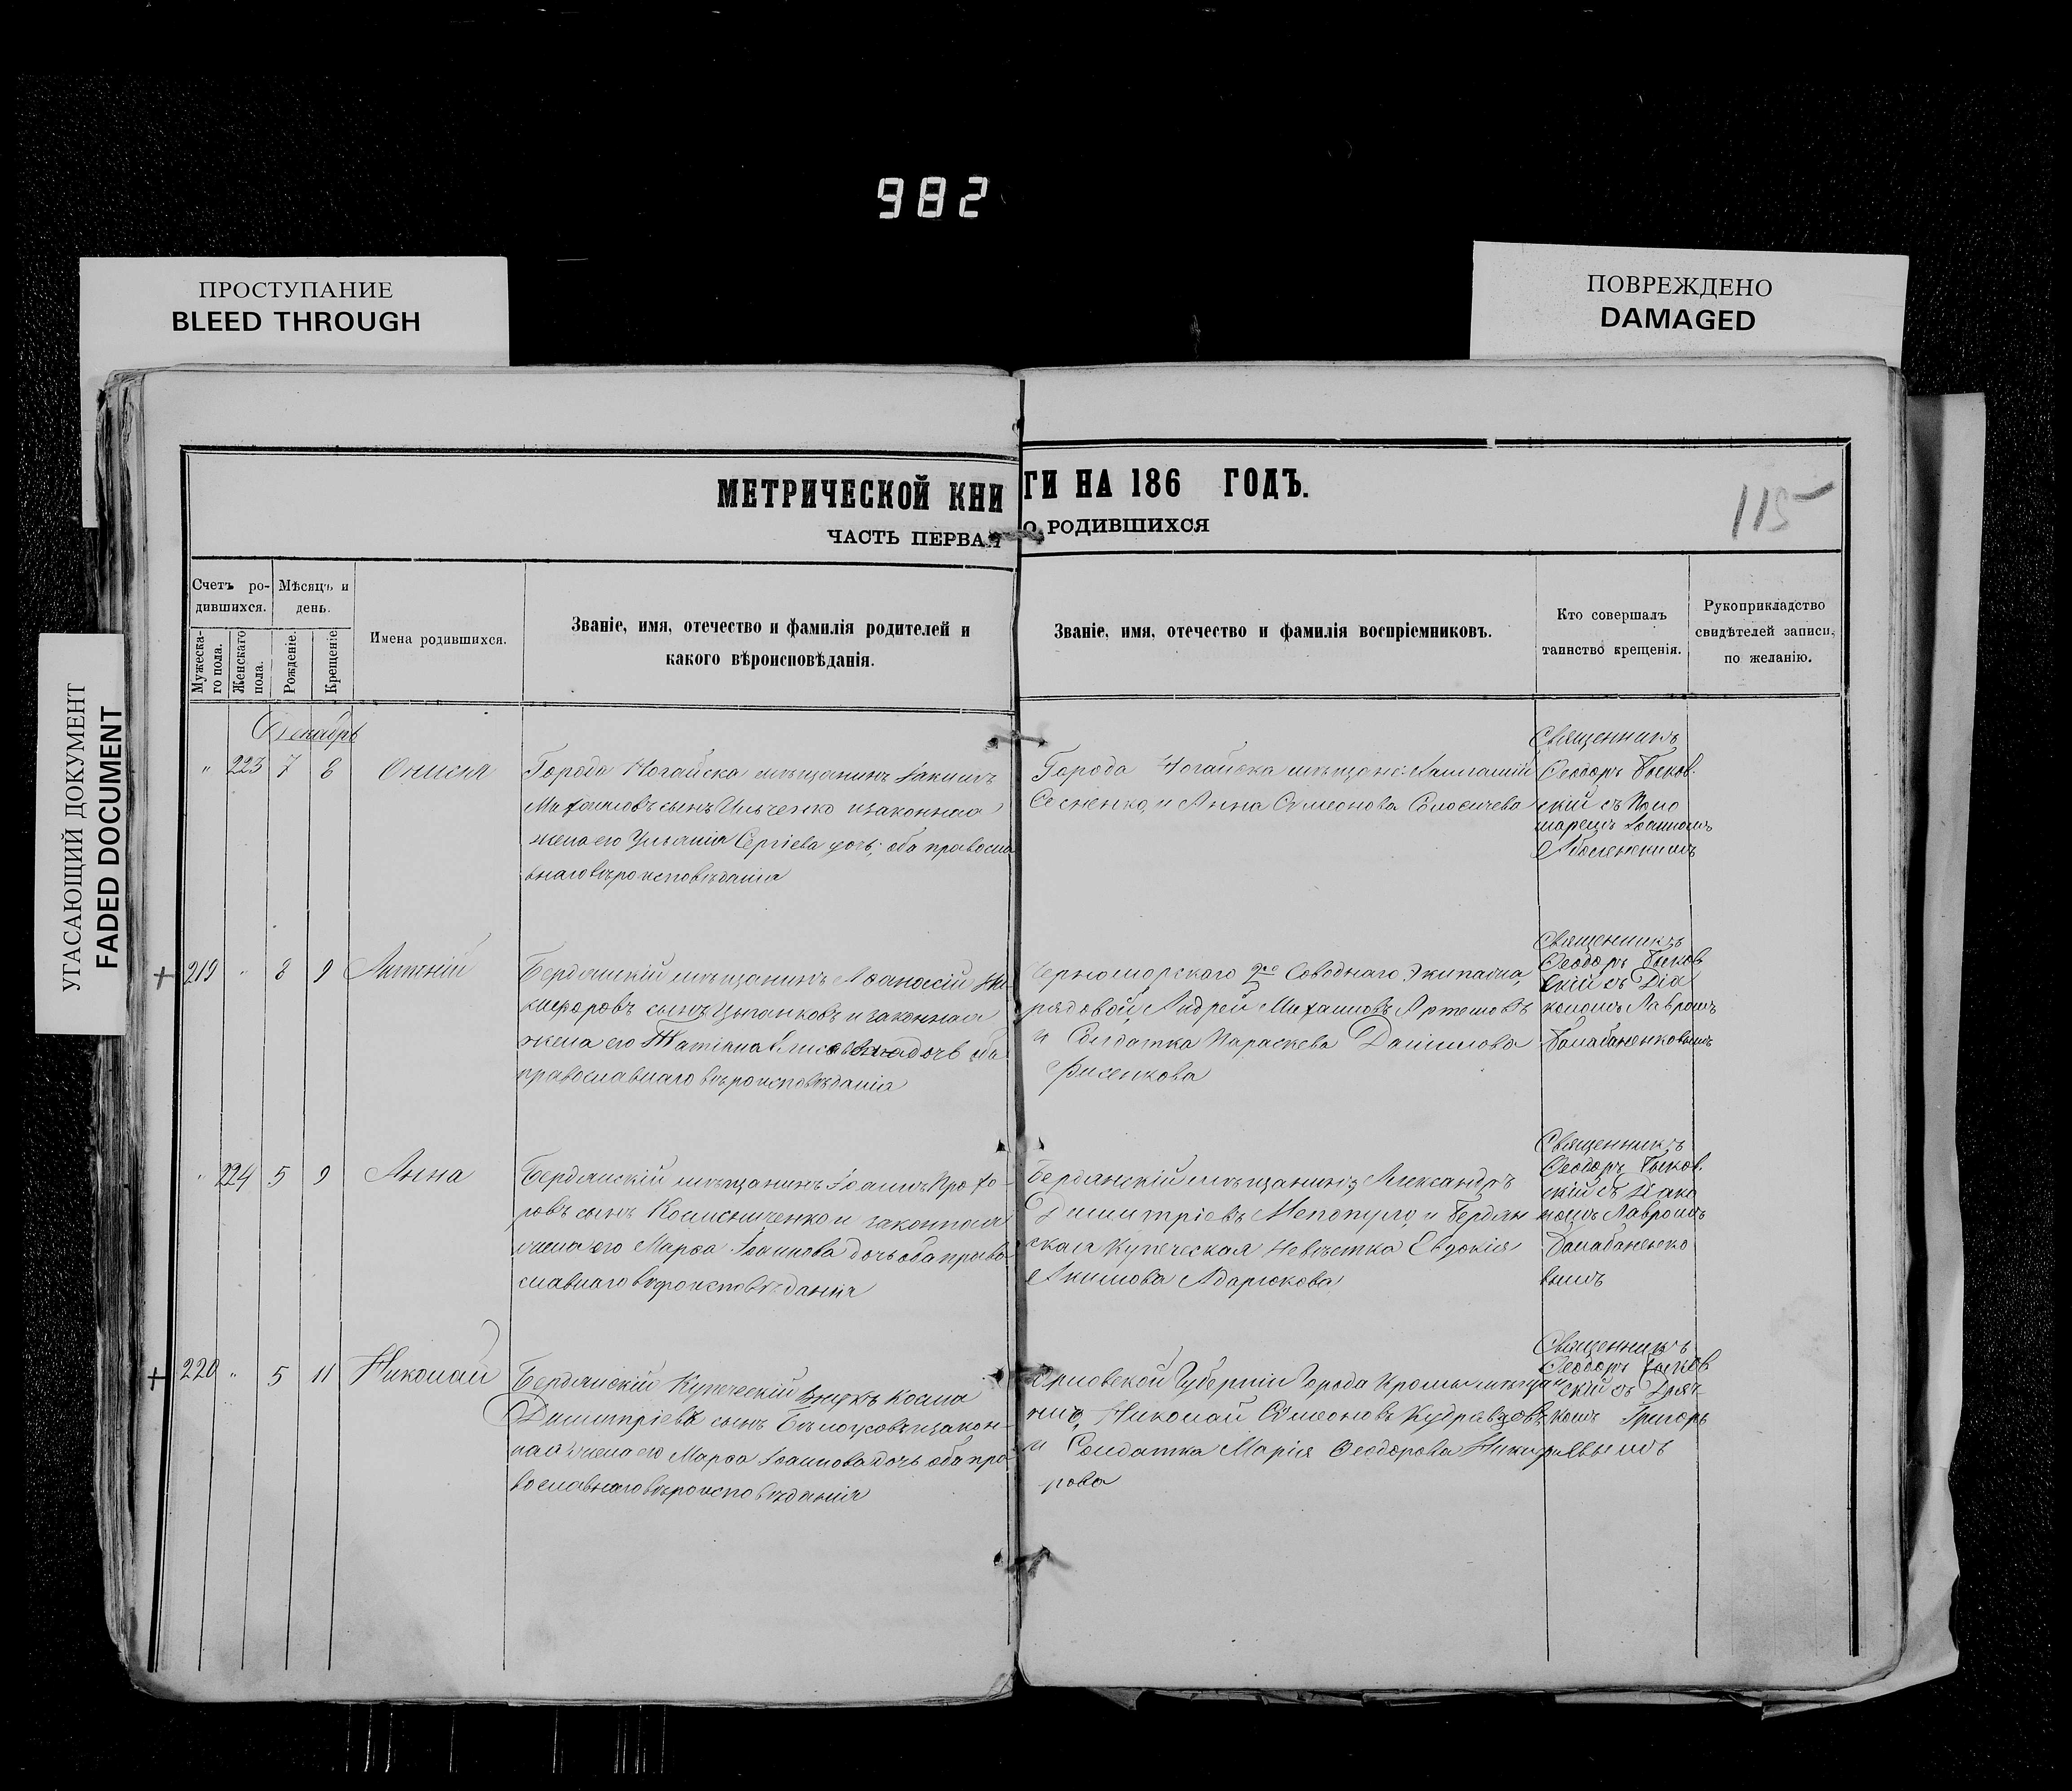 982
ПРОСТУПАНИЕ
BLEED THROUGH
ПОВРЕЖДЕНО
DAMAGED
УГАСАЮЩИЙ ДОКУМЕНТ
FADED DOCUMENT
МЕТРИЧЕСКОЙ КНИГИ НА 186 ГОДЪ.
115
ЧАСТЬ ПЕРВАЯ О РОДИВШИХСЯ
Счетъ ро-
дившихся.
Мужеска-
го пола.
Женскаго
пола.
Мѣсяцъ и
день.
Рожденіе.
Крещеніе
Имена родившихся.
Званіе, имя, отечество и фамилія родителей и
какого вѣроисповѣданія.
Званіе, имя, отечество и фамилія воспріемниковъ.
Кто совершалъ
таинство крещенія.
Рукоприкладство
свидѣтелей записи,
по желанію.
Декабрь
" 223 7 8
Города Ногайска мѣщанинъ Іакимъ
Михаиловъ сынъ Ильченко и законная
жена его Ульянія Сергіева дочь; оба правосла
внаго вѣроисповѣданія
Города Ногайска мѣщане:
и Анна Симеонова
Священникъ
Ѳеодоръ Быков
скій съ Поно
маремъ Іоанномъ
+ 219 " 8 9 Антоній
Бердянскій мѣщанинъ Аѳанасій Ни
кифоровъ сынъ Цыганковъ и законная
жена его Татіана дочь оба
православнаго вѣроисповѣданія
Черноморскаго 2го Своднаго Экипажа,
рядовой Андрей Михаиловъ Артемовъ
и Солдатка Параскева Даніилова
Фисенкова
Священникъ
Ѳеодоръ Быков
скій съ Діа
кономъ Лавромъ
Балабаненковымъ
" 224 5 9 Анна
Бердянскій мѣщанинъ Іоаннъ Прохо-
ровъ сынъ и законная
жена его Марѳа Іоаннова дочь оба право
славнаго вѣроисповѣданія
Бердянскій мѣщанинъ Александръ
Димитріевъ и Бердян
ская Купеческая Невѣстка Евдокія
Акимова Адарюкова
Священникъ
Ѳеодоръ Быков
скій съ Діако
номъ Лавромъ
Балабаненко
вымъ
+ 220 " 5 11 Николай
Бердянскій Купеческій Внукъ Косма
Димитріевъ сынъ Бѣлоусовъ и закон-
ная жена его Марѳа Іоаннова дочь оба пра
вославнаго вѣроисповѣданія
Орловской Губерніи Города Кромы мѣщан
Николай Симеоновъ Кудрявцовъ
и Солдатка Марія Ѳеодорова Никифо
рова
Священникъ
Ѳеодоръ Быков
скій съ Дьяч
комъ Григорь
евымъ